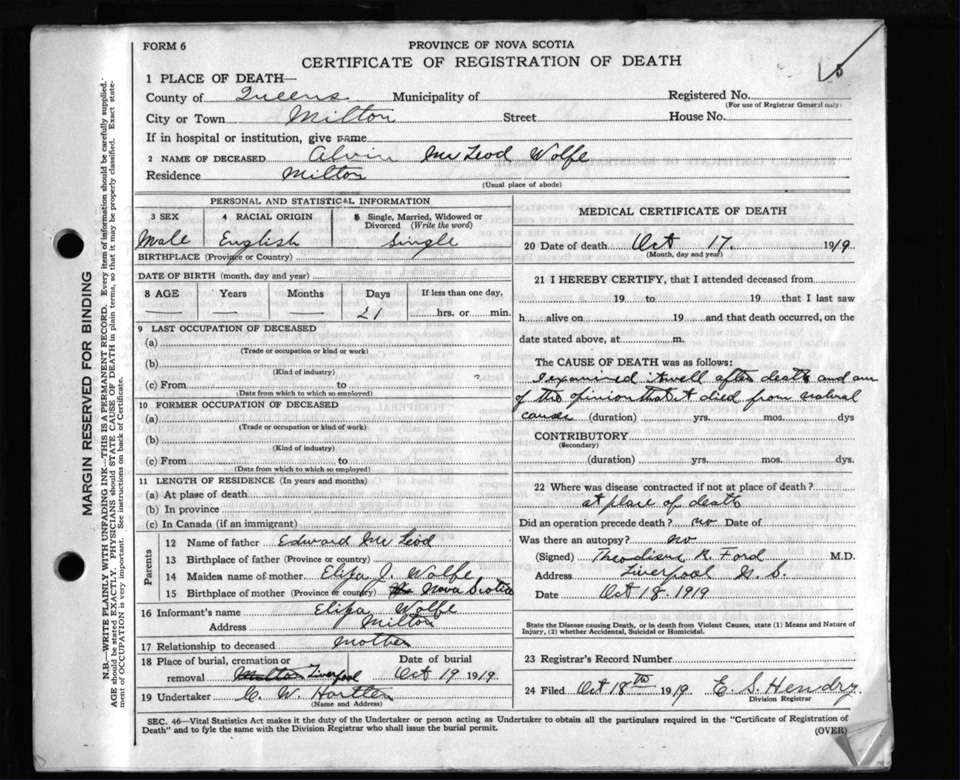 FORM 6
PROVINCE OF NOVA SCOTIA
CERTIFICATE OF REGISTRATION OF DEATH
5
1 PLACE OF DEATH—
County of Queens Municipality of Registered No.
(For use of Registrar General only)
City or Town Milton Street House No.
If in hospital or institution, give name
2 NAME OF DECEASED Alvin McLeod Wolfe
Residence Milton
(Usual place of abode)
PERSONAL AND STATISTICAL INFORMATION
3 SEX 4 RACIAL ORIGIN 5 Single, Married, Widowed or Divorced (Write the word)
Male English Single
BIRTHPLACE (Province or Country)
DATE OF BIRTH (month, day and year)
8 AGE Years Months Days If less than one day,
— — — 21 hrs. or min.
9 LAST OCCUPATION OF DECEASED
(a)
(Trade or occupation or kind or work)
(b)
(Kind of industry)
(c) From to
(Date from which to which so employed)
10 FORMER OCCUPATION OF DECEASED
(a)
(Trade or occupation or kind of work)
(b)
(Kind of industry)
(c) From to
(Date from which to which so employed)
11 LENGTH OF RESIDENCE (In years and months)
(a) At place of death
(b) In province
(c) In Canada (if an immigrant)
Parents
12 Name of father Edward McLeod
13 Birthplace of father (Province or country)
14 Maiden name of mother Eliza J. Wolfe
15 Birthplace of mother (Province or country) Nova Scotia
16 Informant's name Eliza Wolfe
Address Milton
17 Relationship to deceased Mother
18 Place of burial, cremation or Date of burial
removal Milton Liverpool Oct 19 1919
19 Undertaker C. W. Hartten
(Name and Address)
MEDICAL CERTIFICATE OF DEATH
20 Date of death Oct 17. 1919
(Month, day and year)
21 I HEREBY CERTIFY, that I attended deceased from
19 to 19 that I last saw
h alive on 19 and that death occurred, on
date stated above, at m.
The CAUSE OF DEATH was as follows:
I examined it well after death and am
of the opinion that it died from natural
cause (duration) yrs. mos. dys
CONTRIBUTORY
(Secondary)
(duration) yrs. mos. dys.
22 Where was disease contracted if not at place of death?
at place of death
Did an operation precede death? no Date of
Was there an autopsy? no
(Signed) R. Ford M.D.
Address Liverpool N. S.
Date Oct 18. 1919
State the Disease causing Death, or in death from Violent Causes, state (1) Means and Nature of
Injury, (2) whether Accidental, Suicidal or Homicidal.
23 Registrar's Record Number
24 Filed Oct 18th 1919 E. S. Hendry
Division Registrar
SEC. 46—Vital Statistics Act makes it the duty of the Undertaker or person acting as Undertaker to obtain all the particulars required in the "Certificate of Registration of
Death" and to fyle the same with the Division Registrar who shall issue the burial permit.
(OVER)
MARGIN RESERVED FOR BINDING
N.B.—WRITE PLAINLY WITH UNFADING INK—THIS IS A PERMANENT RECORD. Every item of information should be carefully supplied.
AGE should be stated EXACTLY. PHYSICIANS should STATE CAUSE OF DEATH in plain terms, so that it may be properly classified. Exact state-
ment of OCCUPATION is very important. See instructions on back of Certificate.